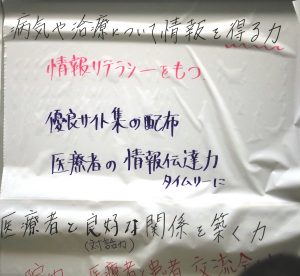 病気や治療について情報を得る力
情報リテラシーをもつ
優良サイト集の配布
医療者の情報伝達力
タイムリーに
医療者と良好な関係を築く力
(対話力)
院内 医療者と患者 交流会